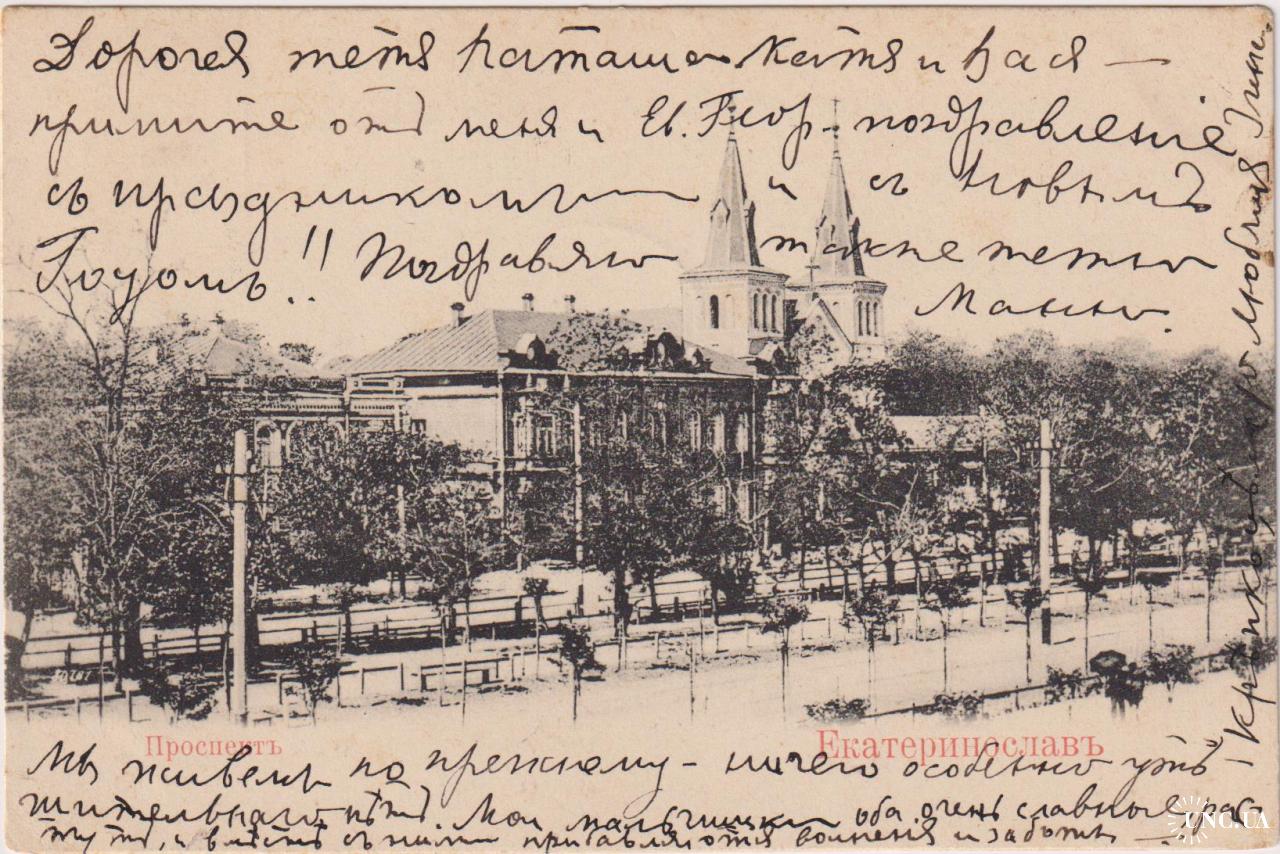 Дорогая тетя Наташа Катя и Вася —
примите отъ меня и Ев. Геор. поздравление
съ праздникомъ и съ Новымъ
Годомъ!! Поздравляю также тетю
Маню.
Проспектъ
Екатеринославъ
Мы живемъ по прежнему - ничего особенно утѣ-
шительнаго нѣтъ. Мои мальчишки оба очень славные, рас-
тутъ, и вмѣстѣ съ ними прибавляются волненя и заботы —
Крѣпко цѣлую любящая
UNC.UA